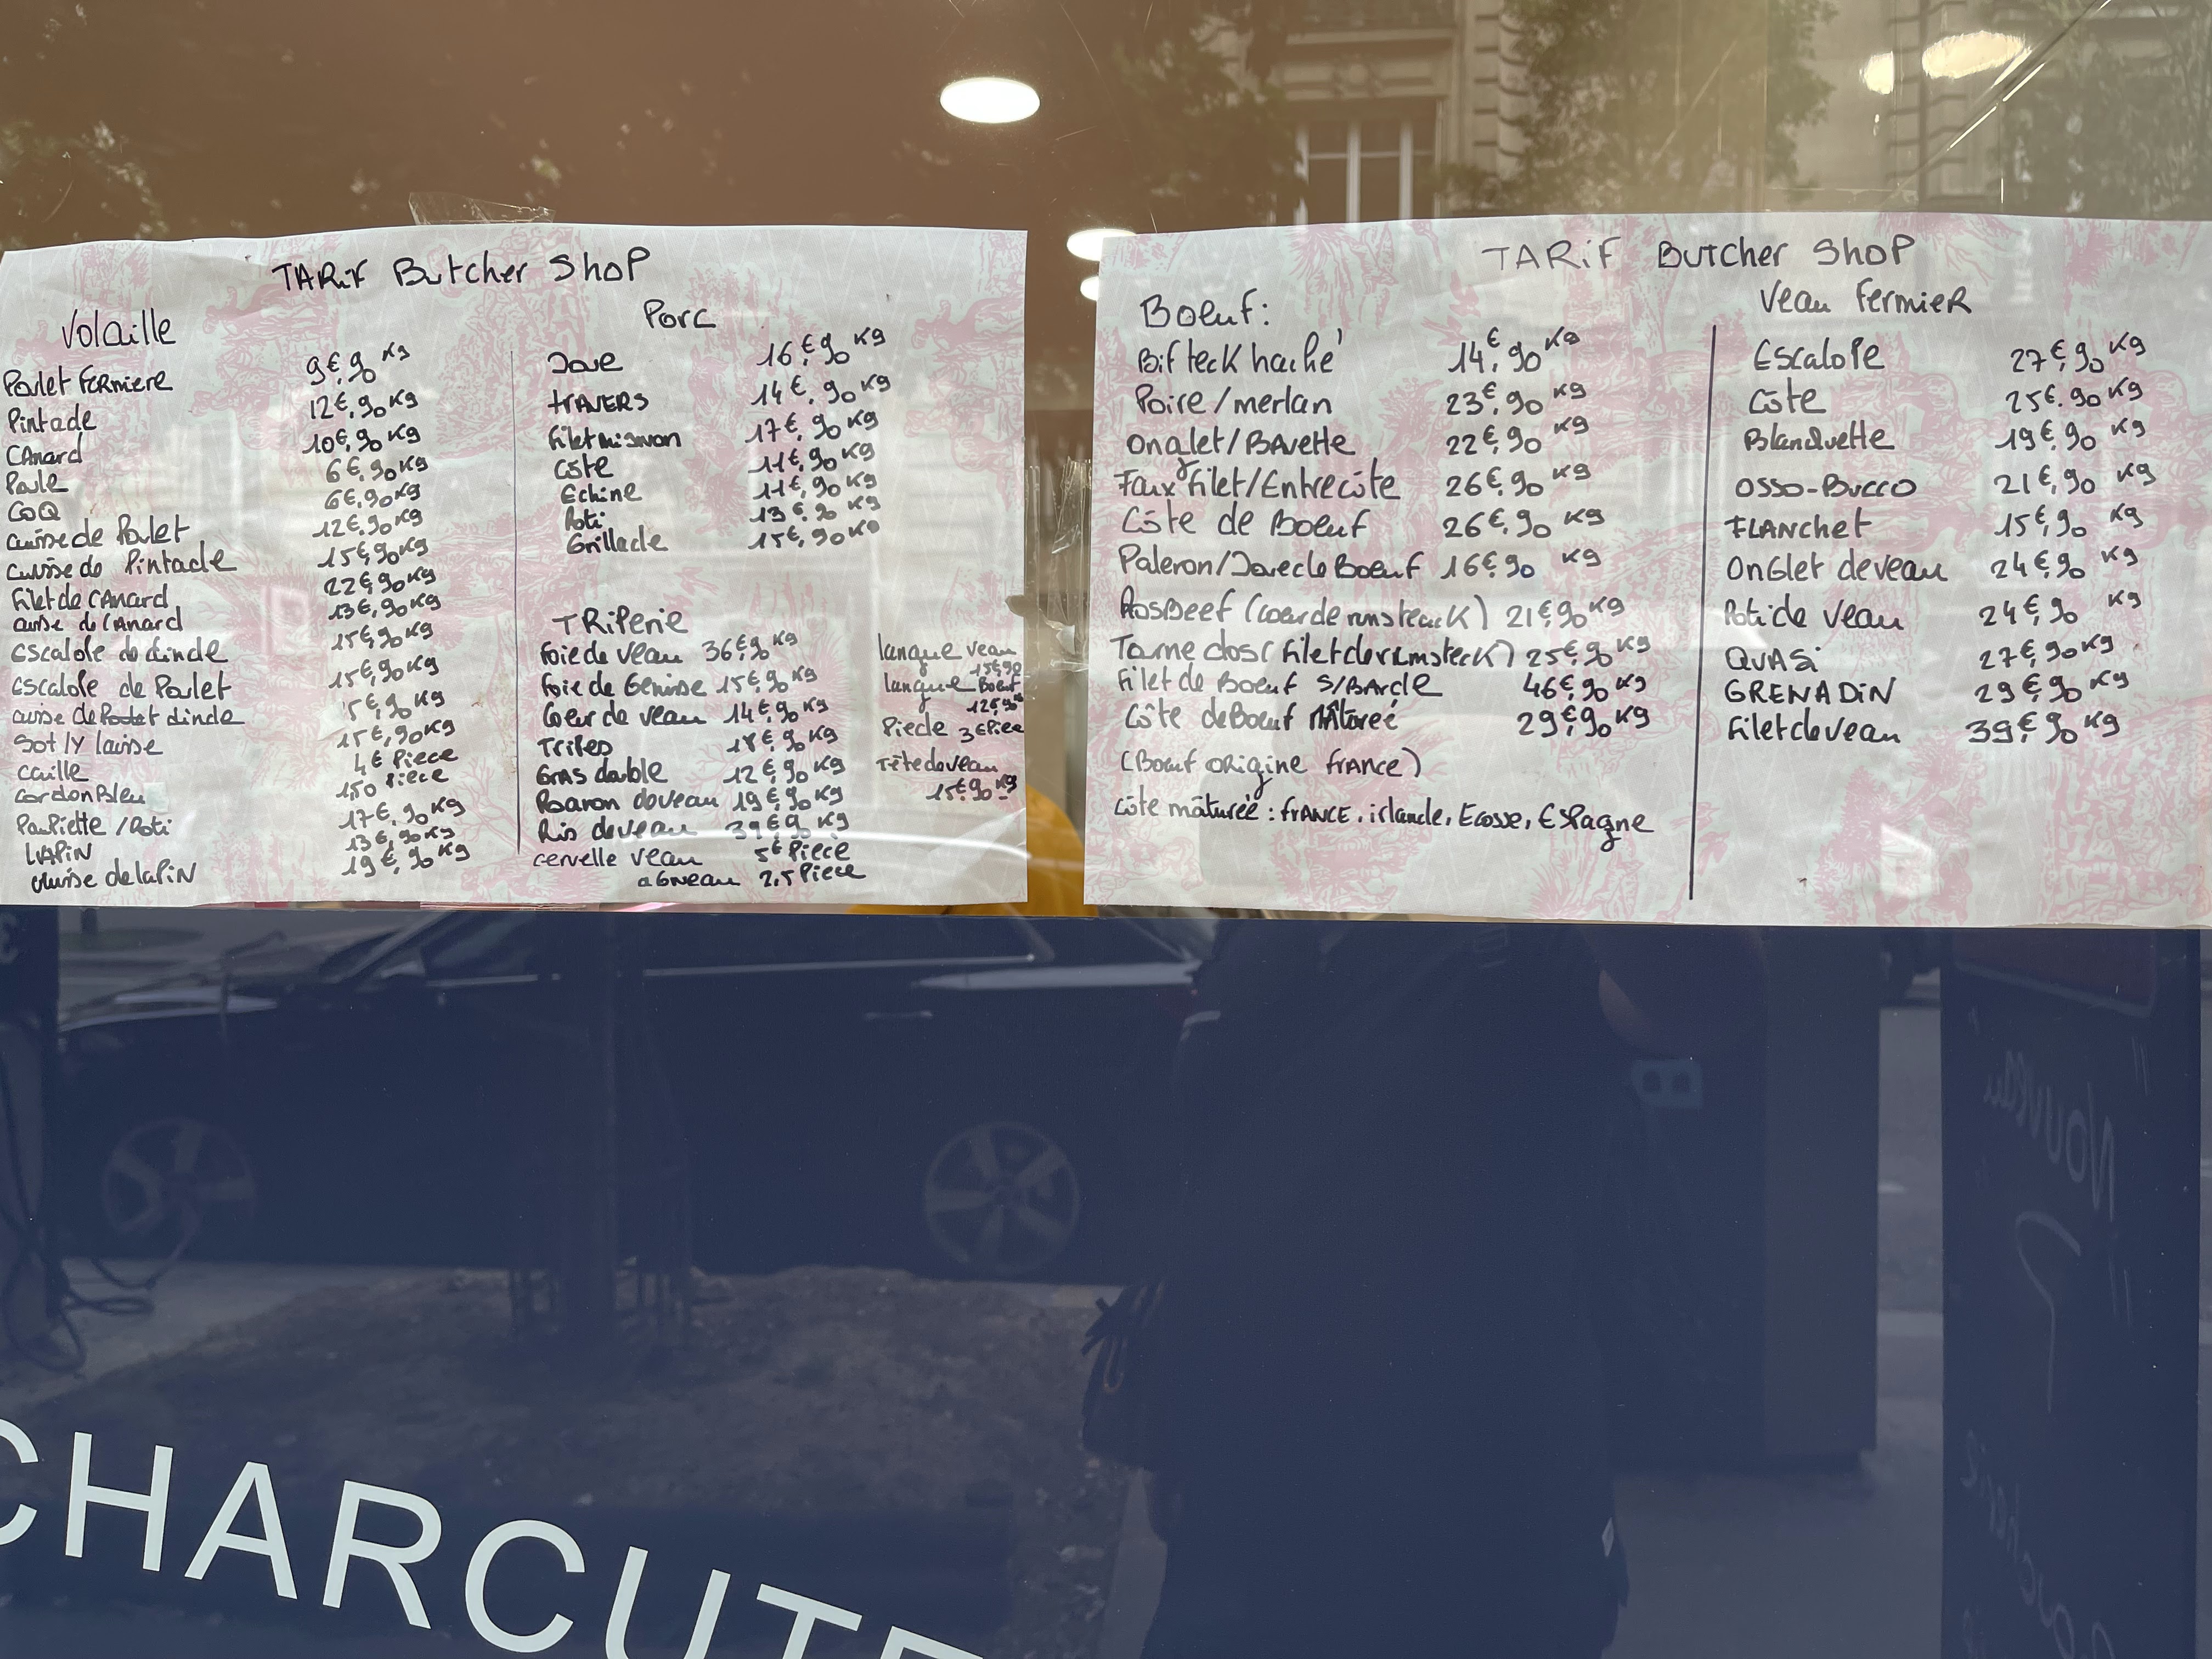 TARiF Butcher Shop
Volaille
Poulet Fermiere 9€,90 Kg
Pintade 12€,90 Kg
CAnard 10€,90 Kg
Poule 6€,90 Kg
CoQ 6€,90 Kg
cuisse de Poulet 12€,90 Kg
cuisse de Pintade 15€,90 Kg
filet de CAnard 22€,90 Kg
cuisse de CAnard 13€,90 Kg
Escalope de dinde 15€,90 Kg
Escalope de Poulet 15€,90 Kg
cuisse de dinde 5€,90 Kg
Sot ly laisse 15€,90 Kg
caille 4€ Piece
cordon Bleu 150 Piece
PauPiette / Roti 17€,90 Kg
LAPiN 13€,90 Kg
cuisse de laPiN 19€,90 Kg
Porc
Joue 16€,90 Kg
tRAVERS 14€,90 Kg
filet mignon 17€,90 Kg
Côte 11€,90 Kg
Echine 11€,90 Kg
Roti 13€,90 Kg
Grillade 15€,90 Kg
TRiPerie
foie de veau 36€,90 Kg
foie de Genisse 15€,90 Kg
Coeur de veau 14€,90 Kg
Tripes 18€,90 Kg
GRAS double 12€,90 Kg
Rognon de veau 19€,90 Kg
Ris de veau 39€,90 Kg
cervelle veau 5€ Piece
aGNeau 2,5 Piece
langue veau
15€,90
langue Boeuf
12€,90
Piede 3€ Piece
Tête de veau
15€,90 Kg
TARiF Butcher Shop
Boeuf:
Bifteck haché 14€,90 Kg
Poire/merlan 23€,90 Kg
Onglet/BAvette 22€,90 Kg
Faux filet/Entrecôte 26€,90 Kg
Côte de Boeuf 26€,90 Kg
Paleron/Joue de Boeuf 16€,90 Kg
RosBeef (coeur de rumsteack) 21€,90 Kg
Tourne dos (filet de rumsteck) 25€,90 Kg
Filet de Boeuf S/BArde 46€,90 Kg
Côte de Boeuf Mâtureé 29€,90 Kg
(Boeuf ORigine fRANCE)
Côte mâturée : fRANCE, irlande, Ecosse, ESPagne
Veau fermieR
EScaloPe 27€,90 Kg
Côte 25€,90 Kg
Blanquette 19€,90 Kg
OSSO-Bucco 21€,90 Kg
FLANchet 15€,90 Kg
OnGlet de veau 24€,90 Kg
Roti de veau 24€,90 Kg
QuASi 27€,90 Kg
GRENADiN 29€,90 Kg
filet de veau 39€,90 Kg
CHARCUTE